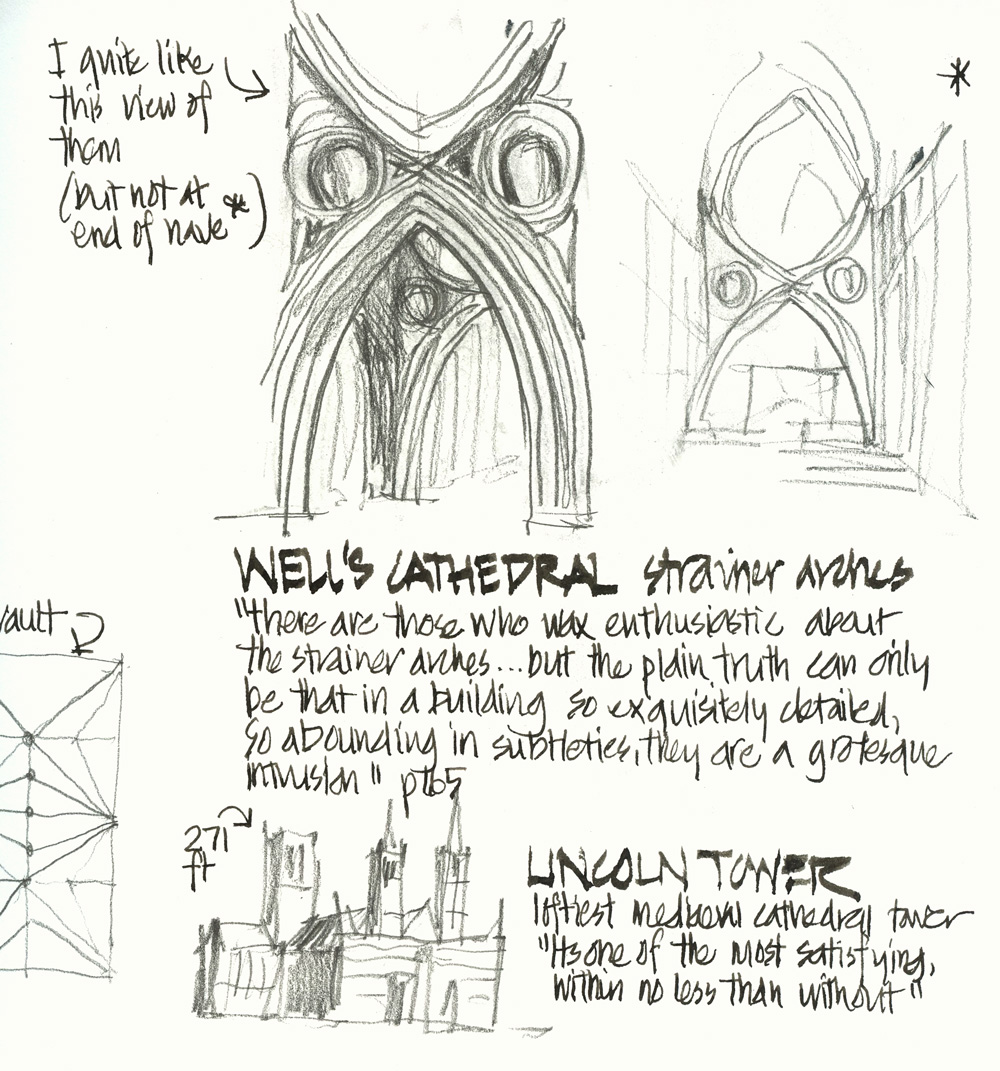 I quite like
this view of
them
(but not at
end of nave*)
*
WELL'S CATHEDRAL strainer arches
"there are those who wax enthusiastic about
the strainer arches...but the plain truth can only
be that in a building so exquisitely detailed,
so abounding in subtleties, they are a grotesque
intrusion" p165
vault
271
ft
LINCOLN TOWER
loftiest mediaeval cathedral tower
"Its one of the most satisfying,
within no less than without"